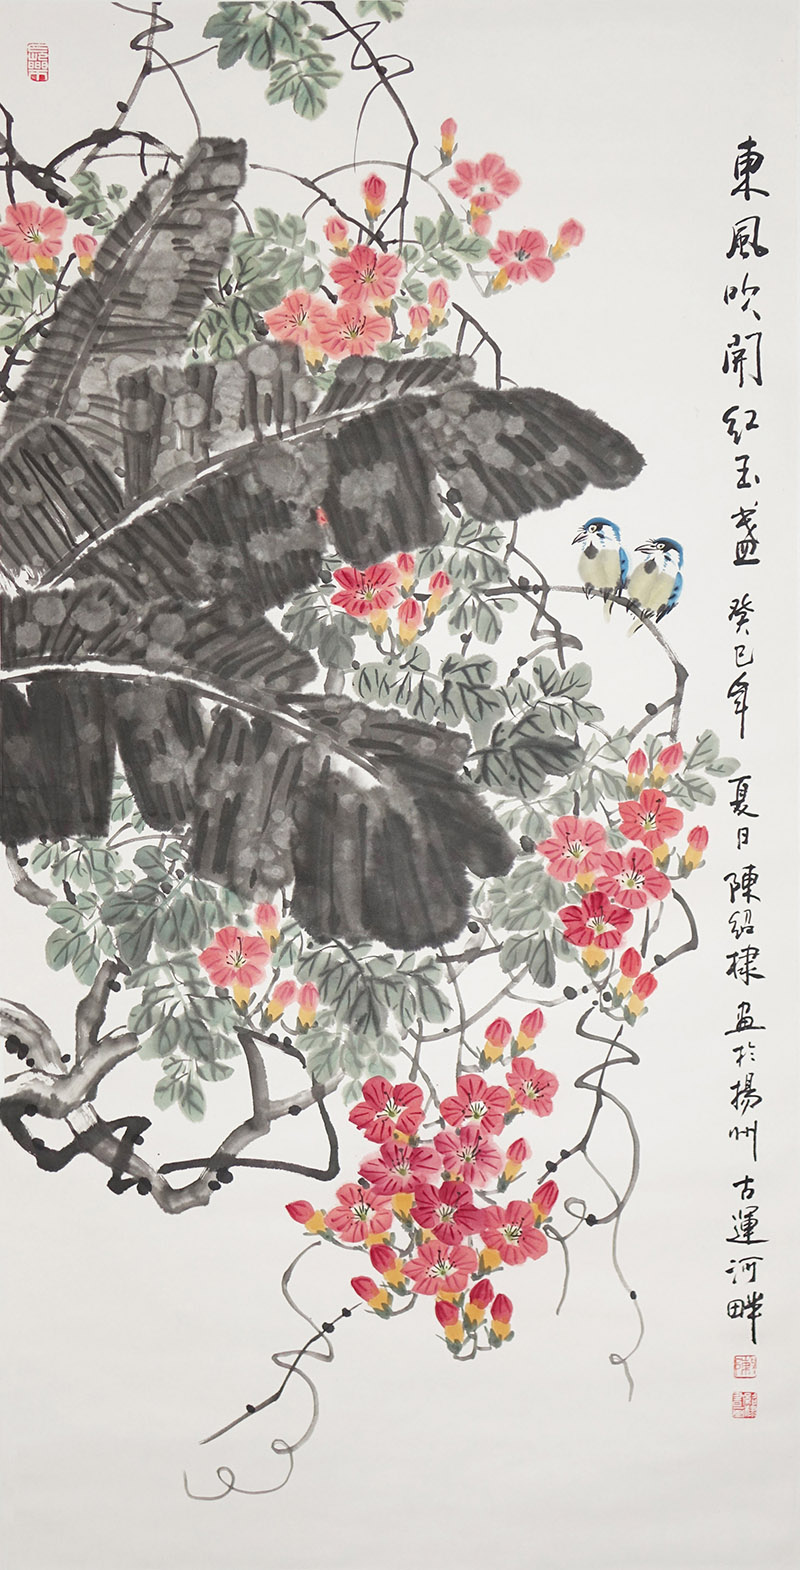 東風吹開紅玉盞 癸巳年 夏日陳紹棣畫於揚州古運河畔